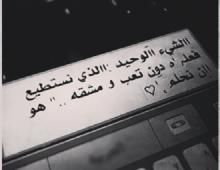 االشيء االوحيد .االذي نستطيع
فعله ُه دون تعب و مشقه .. " هو
اان نحلم , "♡